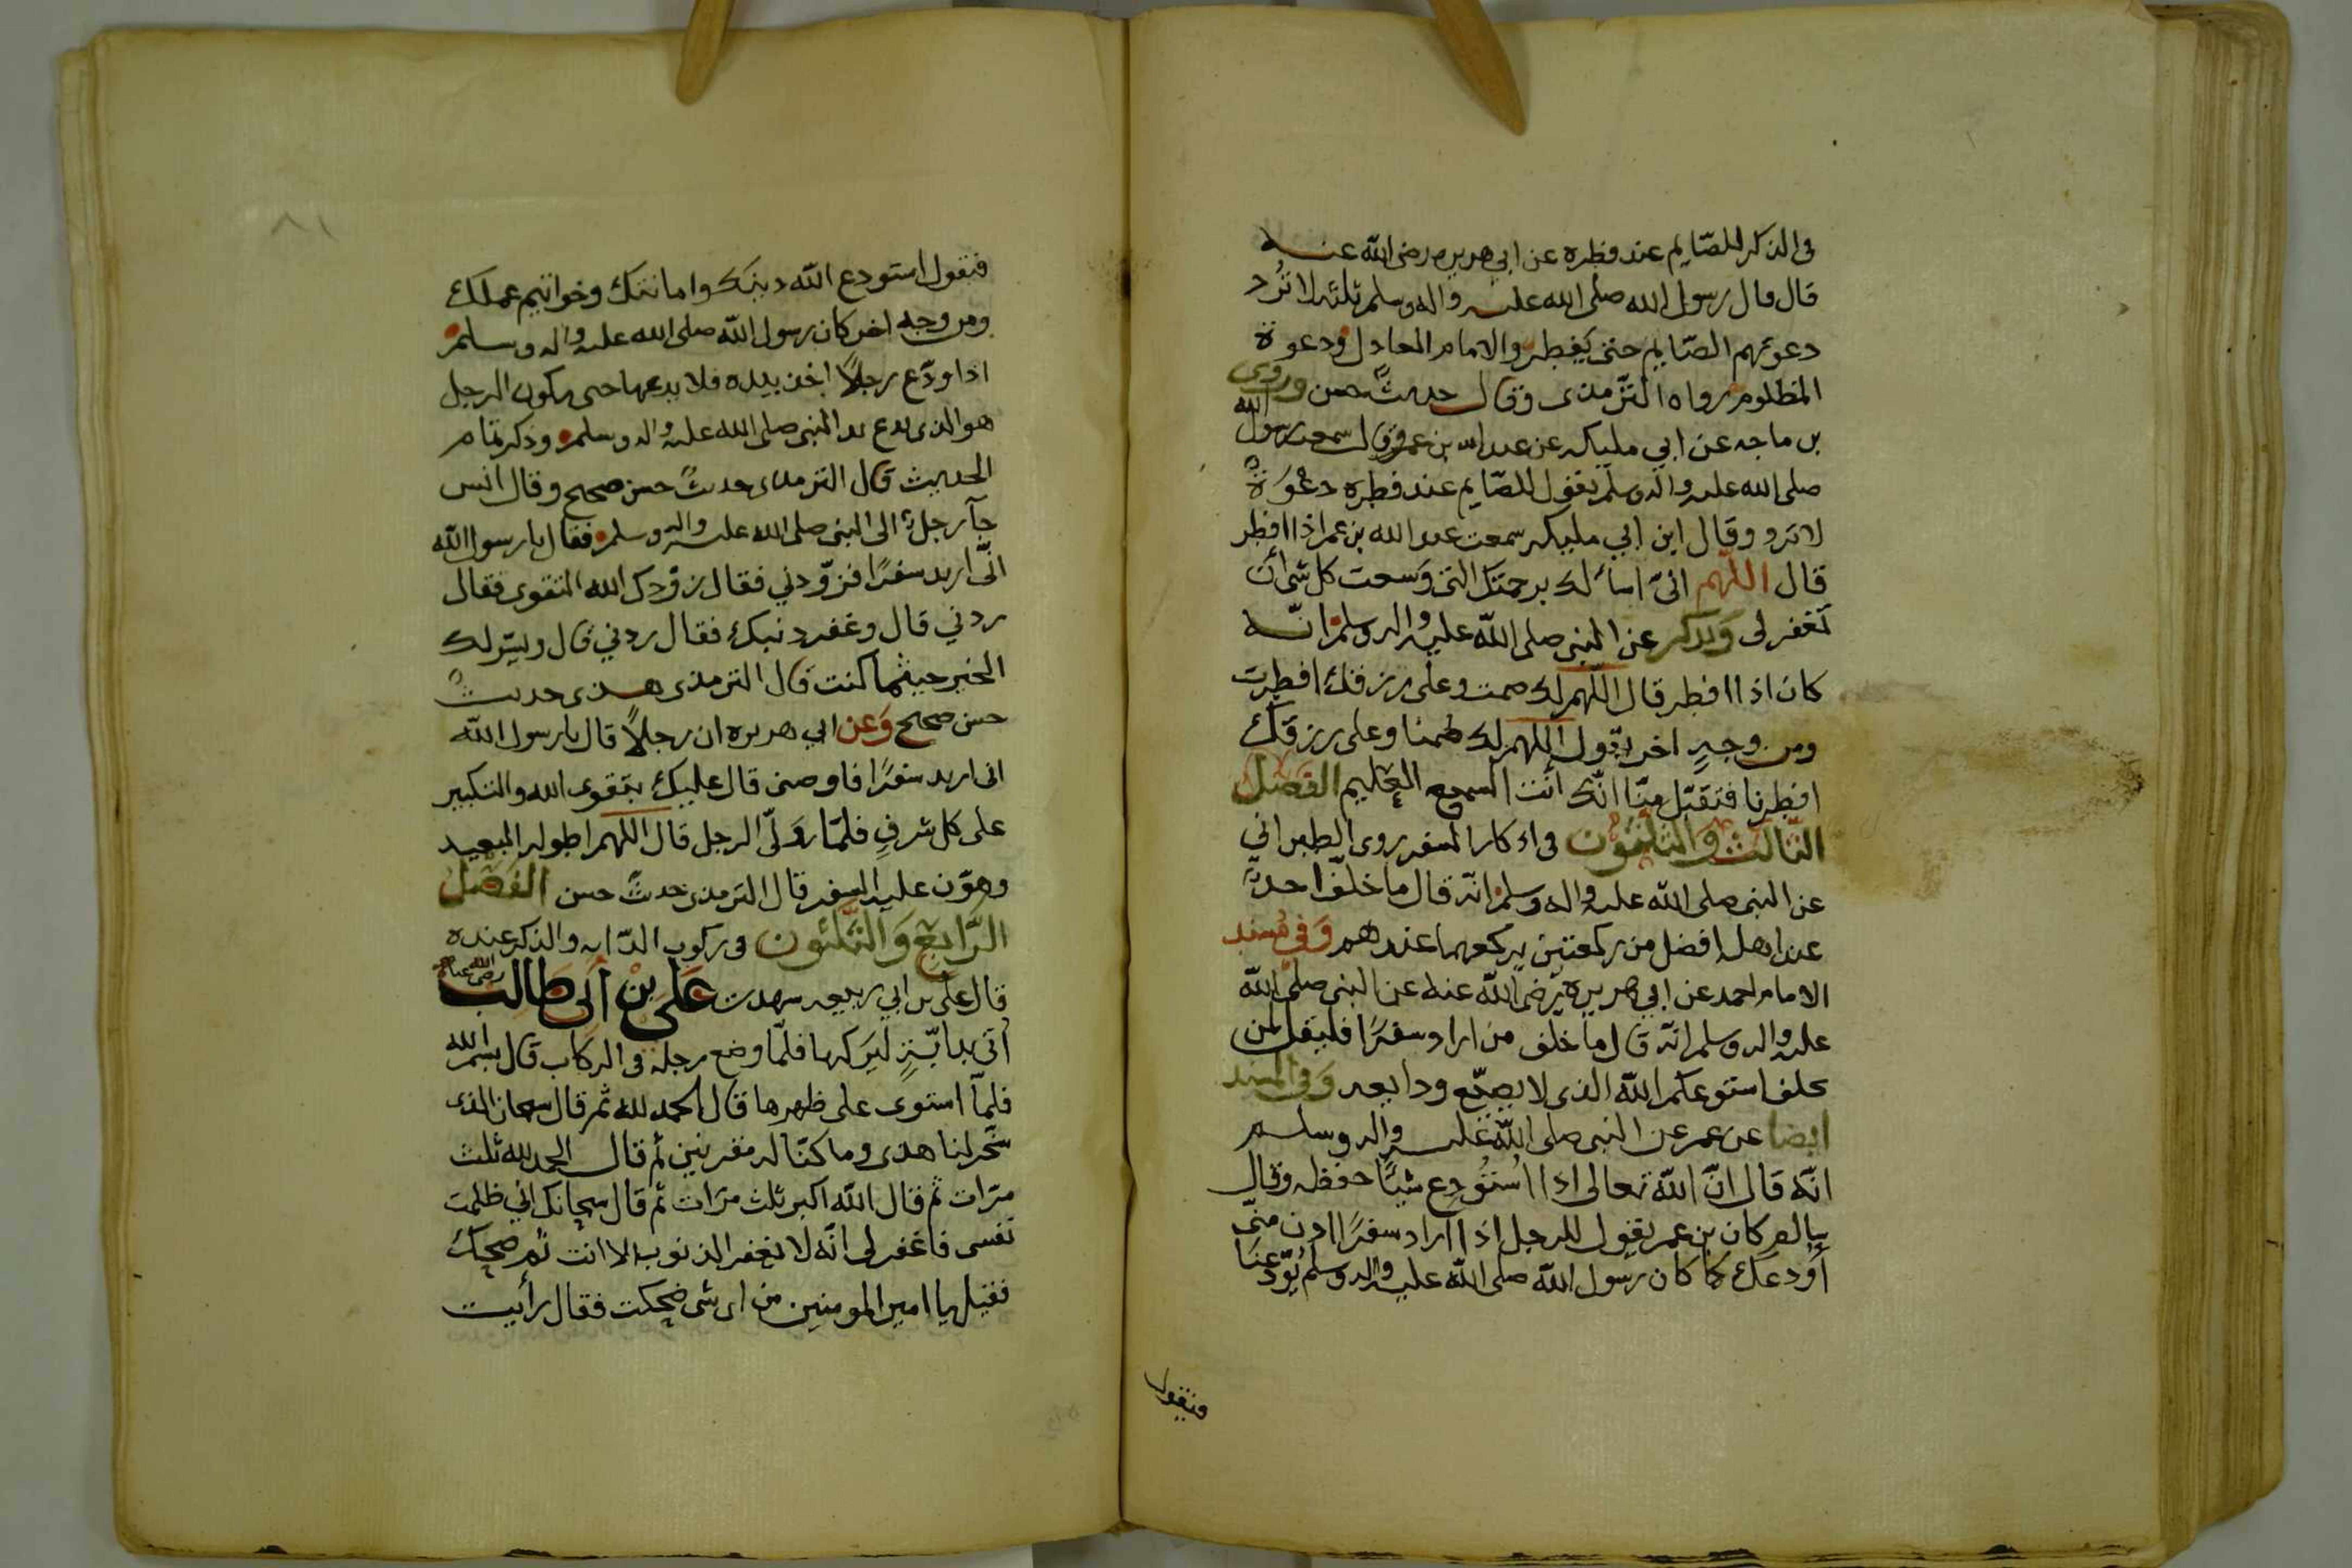 في الذكر للصّايم عند فطره عن ابي هريره رضي الله عنه
قال قال رسول الله صلى الله عليه واله وسلم ثلثه لا تُرد
دعوتهم الصّايم حتى يَفطر والامام العادل ودعوة
المظلوم رواه الترّمذى وقال حديثٌ حسن وروى
بن ماجه عن ابي مليكه عن عبد الله بن عمرو قال سمعت رسول الله
صلى الله عليه واله وسلم يقول للصّايم عند فطره دعْوَةٌ
لا ترد وقال ابن ابي مليكه سمعت عبد الله بن عمر اذا افطر
قال اللّهم انى اسأ لك برحمتك التى وَسعت كل شى أن
تغفر لى وَيذكر عن النبى صلى الله عليه واله وسلم انّه
كان اذا افطر قال اللّهم لك صمت وعلى رزقك افطرت
ومن وجهٍ اخر يقول اللهم لك صمنا وعلى رزقك
افطرنا فتقبّل منّا انّك أنت السميع العليم الفصْل
الثّالث والثّلثون في اذكار السفر روى الطبراني
عن النبى صلى الله عليه واله وسلم انّه قال ما خلّف احدٌ
عند اهله افضل من ركعتين يركعهما عندهم وَفي مُسند
الامام احمد عن ابي هريرة رضي الله عنه عن النبى صلى الله
عليه واله وسلم انّه قال ما خلف من اراد سفرًا فليقل لمن
يخلف استودعكم الله الذى لا يضيّع ودايعه وَفي المسند
ايضا عن عمر عن النبى صلى الله عليه واله وسلم
انّه قال انّ الله تعالى اذا اُسْتُوْدِع شيئًا حفظه وقال
سالم كان بن عمر يقول للرجل اذا اراد سفرًا ادن منّى
أُودعك كما كان رسول الله صلى الله عليه واله وسلم يُوّدعنَا
فيقول
فيقول استودع الله دينك وامانتك وخواتيم عملك
ومن وجه اخر كان رسول الله صلى الله عليه واله وسلم
اذا ودّع رجلًا اخذ بيده فلا يدعها حتى يكون الرجل
هو الذى يدع يد النبى صلى الله عليه واله وسلم وذكر تمام
الحديث قال الترمذى حديثٌ حسن صحيح وقال انس
جآ رجلٌ الى النبى صلى الله عليه واله وسلم فقال يا رسول الله
انّى اريد سفرًا فزوّدني فقال زوّدك الله التقوى فقال
زدني قال وغفر ذنبك فقال زدني قال ويسّر لك
الخير حيثما كنت قال الترمذى هذى حديثٌ
حسن صحيح وَعن ابي هريره ان رجلًا قال يا رسول الله
انى اريد سفرًا فاوصنى قال عليك بتقوى الله والتكبير
على كل شرفٍ فلمّا ولّى الرجل قال اللهم اطو له البعيد
وهوّن عليه السفر قال الترمذى حديثٌ حسن الفَصْل
الرّابع وَالثّلثون في ركوب الدّابه والذكر عنده
قال على بن ابي ربيعه شهدت عَلى بْن أَبى طَالب رضى الله عنه
اُتى بدابّةٍ ليَركبها فلمّا وضع رجله في الركاب قال بسم الله
فلمّا استوى على ظهرها قال الحمد لله ثم قال سبحان الذى
سخّر لنا هذى وما كنّا له مقرنين ثم قال الحمد لله ثلث
مرّات ثم قال الله اكبر ثلث مرّات ثم قال سبحانك اني ظلمت
نفسى فاغفر لى انّه لا يغفر الذنوب الا انت ثم ضحك
فقيل يا امير المومنين من اى شى ضحكت فقال رأيت
٨١